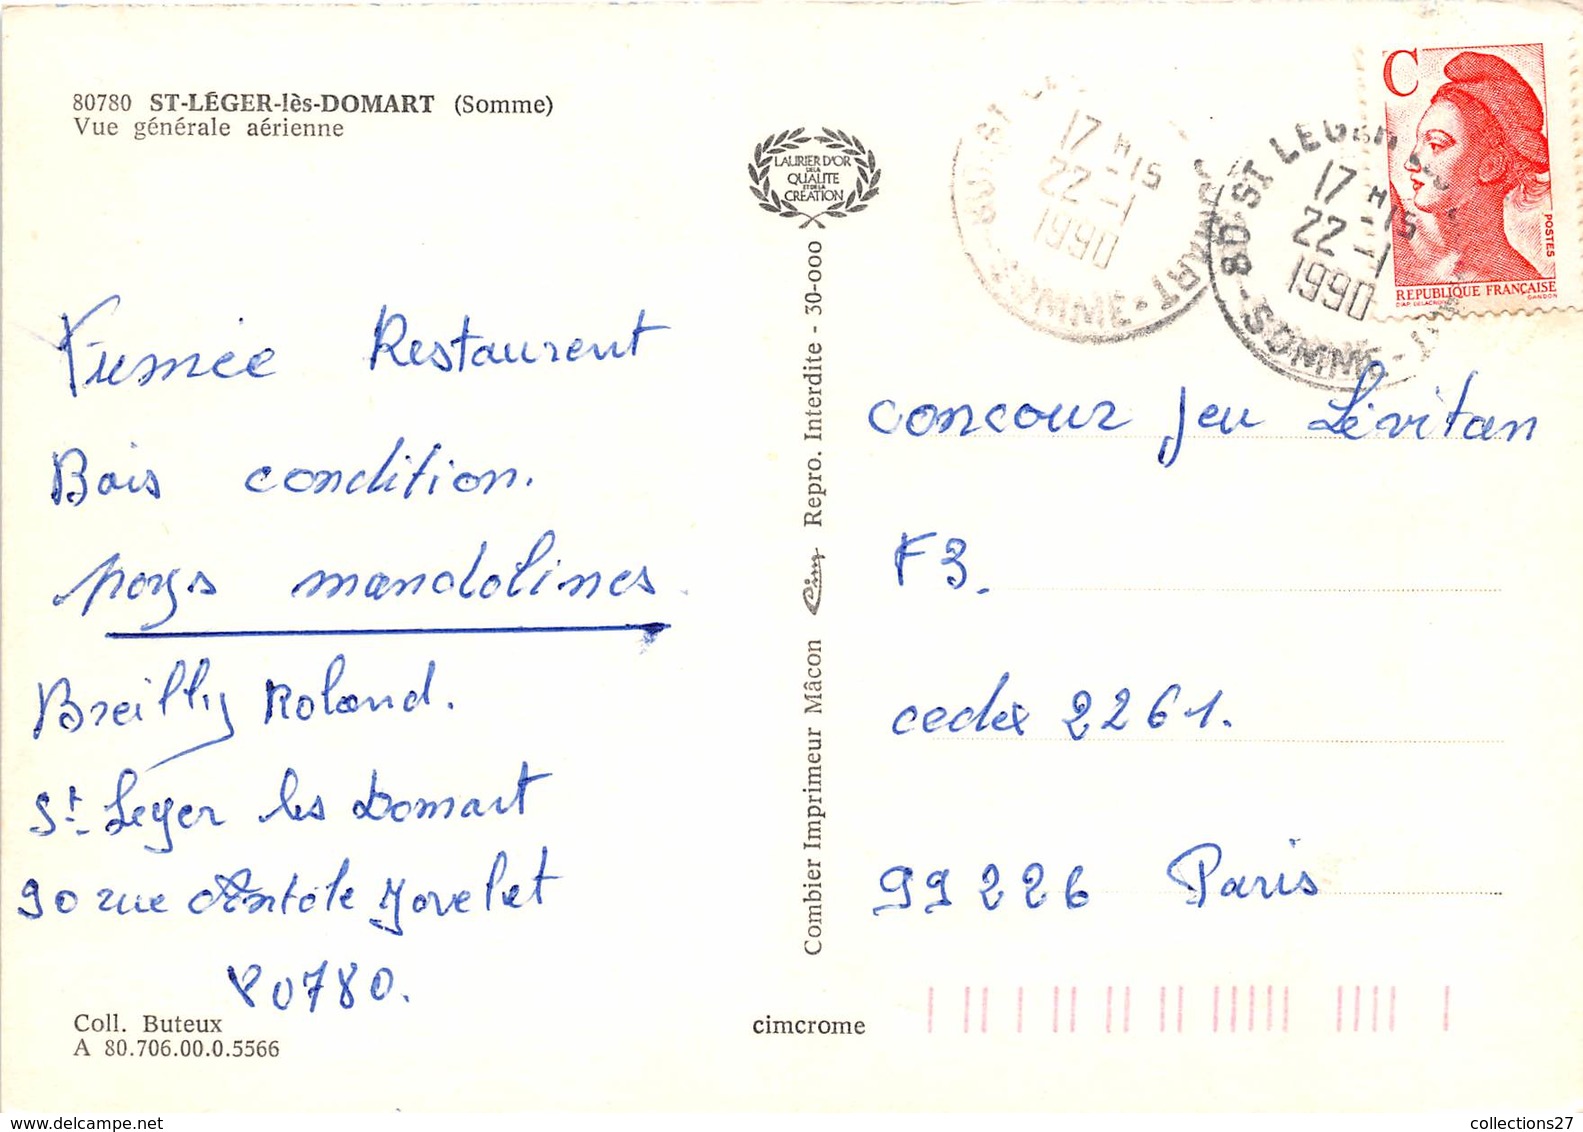 80780 ST-LÉGER-lès-DOMART (Somme)
Vue générale aérienne
Fumée Restaurent
Bois condition.
pays mandolines
Breilly Roland.
St. Leger les Domart
90 rue Antole Jovelet
80780.
Coll. Buteux
A 80.706.00.0.5566
LAURIER D'OR
DE LA
QUALITE
ET DE LA
CREATION
Combier Imprimeur Mâcon Cim Repro. Interdite - 30-000
cimcrome
17 H15
22 -1
1990
SOMME
80 ST LEGER
17 H15
22 -1
1990
SOMME
C
POSTES
REPUBLIQUE FRANÇAISE
D'AP. DELACROIX GANDON
concour Jeu Lévitan
F3.
cedex 2261.
99226 Paris
collections27